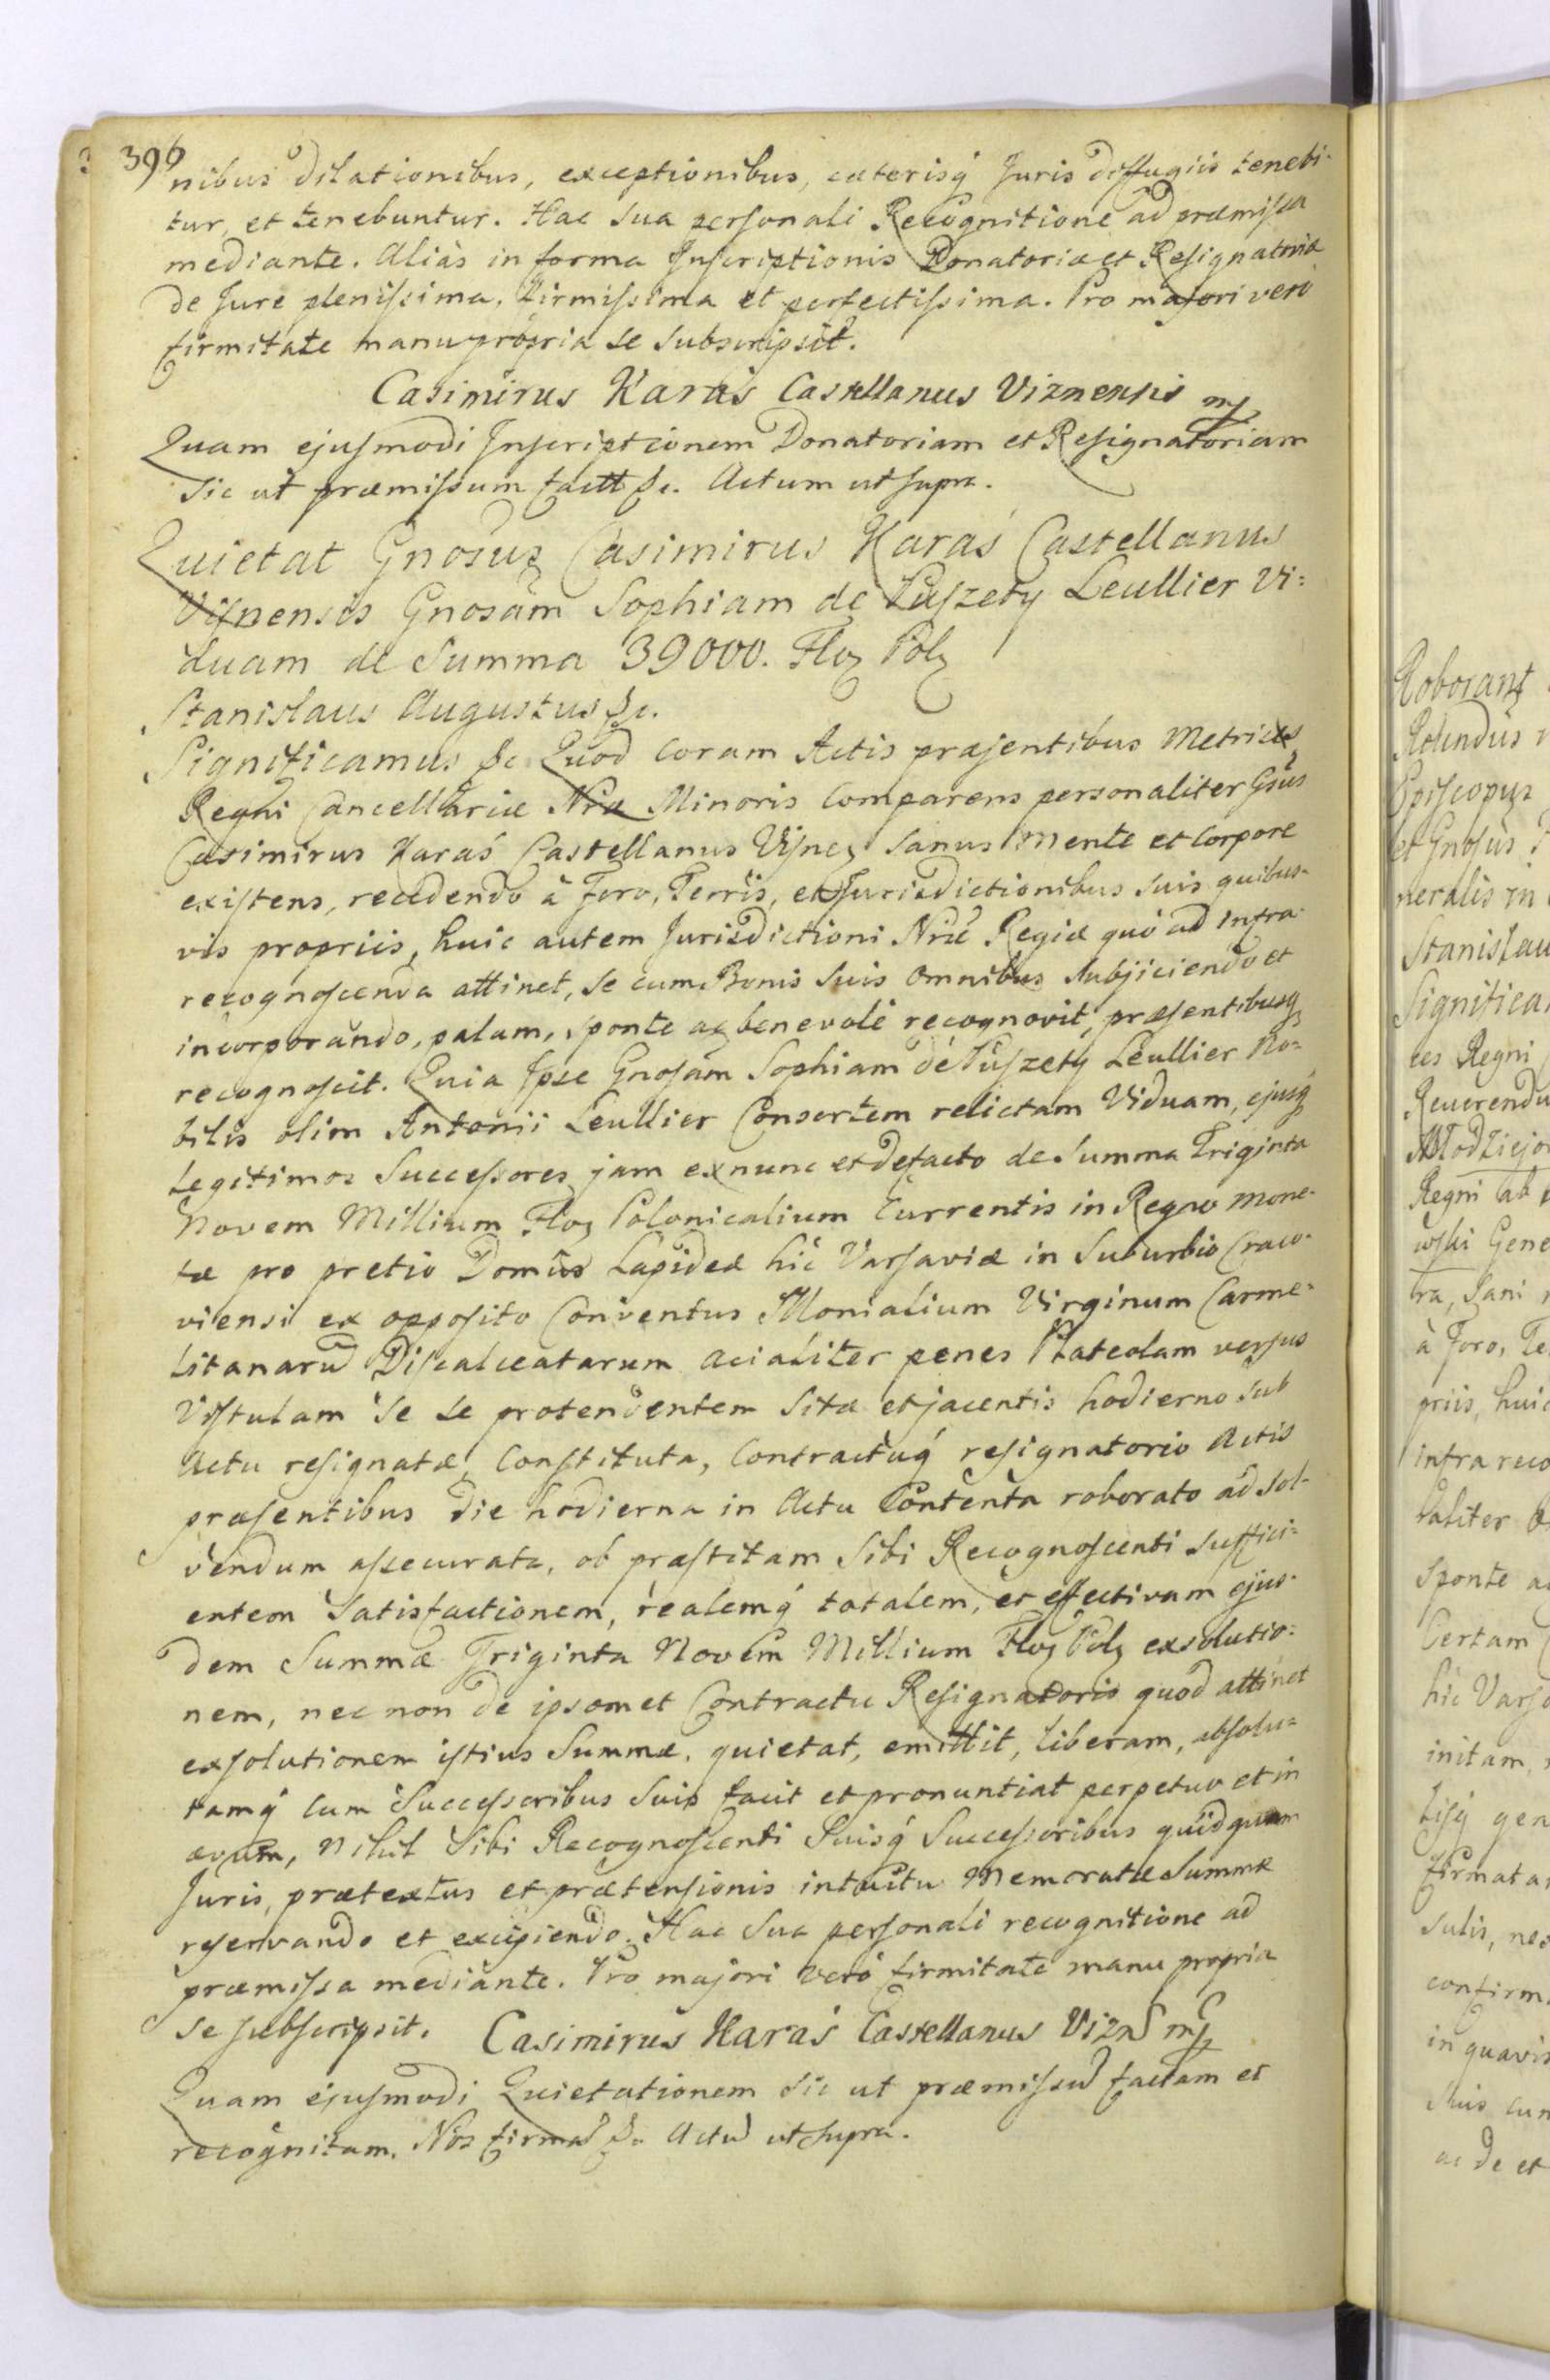 396
nibus dilationibus, exceptionibus, caeterisq́ Juris diffugiis tenebi-
tur, et tenebuntur. Hac sua personali Recognitione ad præmissa
mediante. Aliàs in forma Inscriptionis Donatoriæ et Resignatoriæ
de Jure plenissima, firmissima et perfectissima. Pro majori verò
firmitate manu propria se subscripsit.
Casimirus Karaś Castellanus Viznensis mp
Quam ejusmodi Inscriptionem Donatoriam et Resignatoriam
sic ut præmissum factt &c. Actum ut supra.
Quietat Gnosus Casimirus Karaś Castellanus
Visnensis Gnosam Sophiam de Puszety Leullier Vi=
duam de Summa 39000. Floz Polz
Stanislaus Augustus &c.
Significamus &c Quod coram Actis præsentibus Metrices
Regni Cancellariæ Nræ Minoris Comparens personaliter Gsus
Casimirus Karaś Castellanus Visnez sanus mente et corpore
existens, recedendo à Foro, Terris, et Jurisdictionibus suis quibus-
vis propriis, huic autem Jurisdictioni Nræ Regiæ quò ad infra-
recognoscenda attinet, se cum Bonis suis omnibus subjiciendo et
incorporando, palam, sponte ac benevolè recognovit, præsentibusq
recognoscit. Quia Ipse Gnosam Sophiam de Puszety Leullier No=
bilis olim Antonii Leullier Consortem relictam Viduam, ejusq́
Legitimos Successores jam ex nunc et de facto de Summa Triginta
Novem Millium Floz Polonicalium Currentis in Regno mone-
tæ pro pretio Domûs Lapideæ hic Varsaviæ in Suburbio Craco-
viensi ex opposito Conventus Monialium Virginum Carme-
litanarū Discalceatarum acialiter penes Plateolam versus
Vistulam se se protendentem sitæ et jacentis hodierno sub
Actu resignatæ, Constituta, Contractuq́ resignatorio Actis
præsentibus die hodierna in Actu Contenta roborato ad sol-
vendum assecurata, ob præstitam sibi Recognoscenti suffici=
entem Satisfactionem, realemq́ totalem, et effectivam ejus-
dem Summæ Triginta Novem Millium Floz Polz exsolutio=
nem, nec non de ipsomet Contractu Resignatorio quod attinet
exsolutionem istius Summæ, quietat, emittit, liberam, absolu=
tamq́ cum Successoribus suis facit et pronuntiat perpetuo et in
ævum, Nihil sibi Recognoscenti Suisq́ Successoribus quidquam
Juris, prætextus et prætensionis intuitu Memoratæ Summæ
reservando et excipiendo. Hac sua personali recognitione ad
præmissa mediante. Pro majori verò firmitate manu propria
se subscripsit. Casimirus Karaś Castellanus Vizn mp
Quam ejusmodi Quietationem sic ut præmissū factam et
recognitam. Nos firmas &c Actū ut supra.
Roborant
Significa
Regni
Stanislau